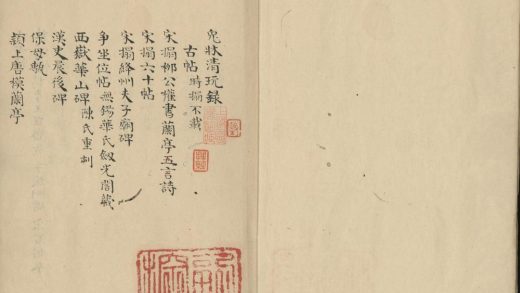 鬼牀清玩錄
古帖 時搨不載
宋搨柳公權書蘭亭五言詩
宋搨六十帖
宋搨絳州夫子廟碑
争坐位帖 無錫華氏劍光閣藏
西嶽華山碑 陳氏重刻
漢史晨後碑
保母甎
潁上唐模蘭亭